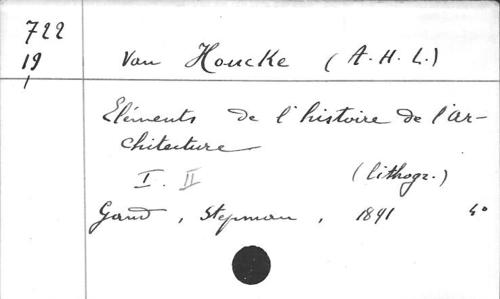 722
19
Van Houcke (A. H. L.)
Eléments de l'histoire de l'ar-
chitecture
I. II
(lithogr.)
Gand, Stepman, 1891 4°